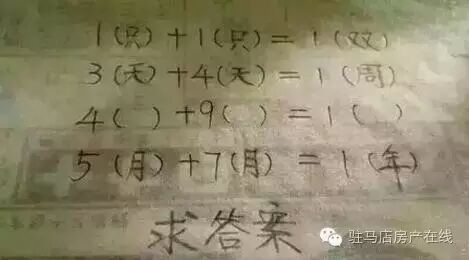 1(只)+1(只)=1(双)
3(天)+4(天)=1(周)
4( )+9( )=1( )
5(月)+7(月)=1(年)
求答案
驻马店房产在线